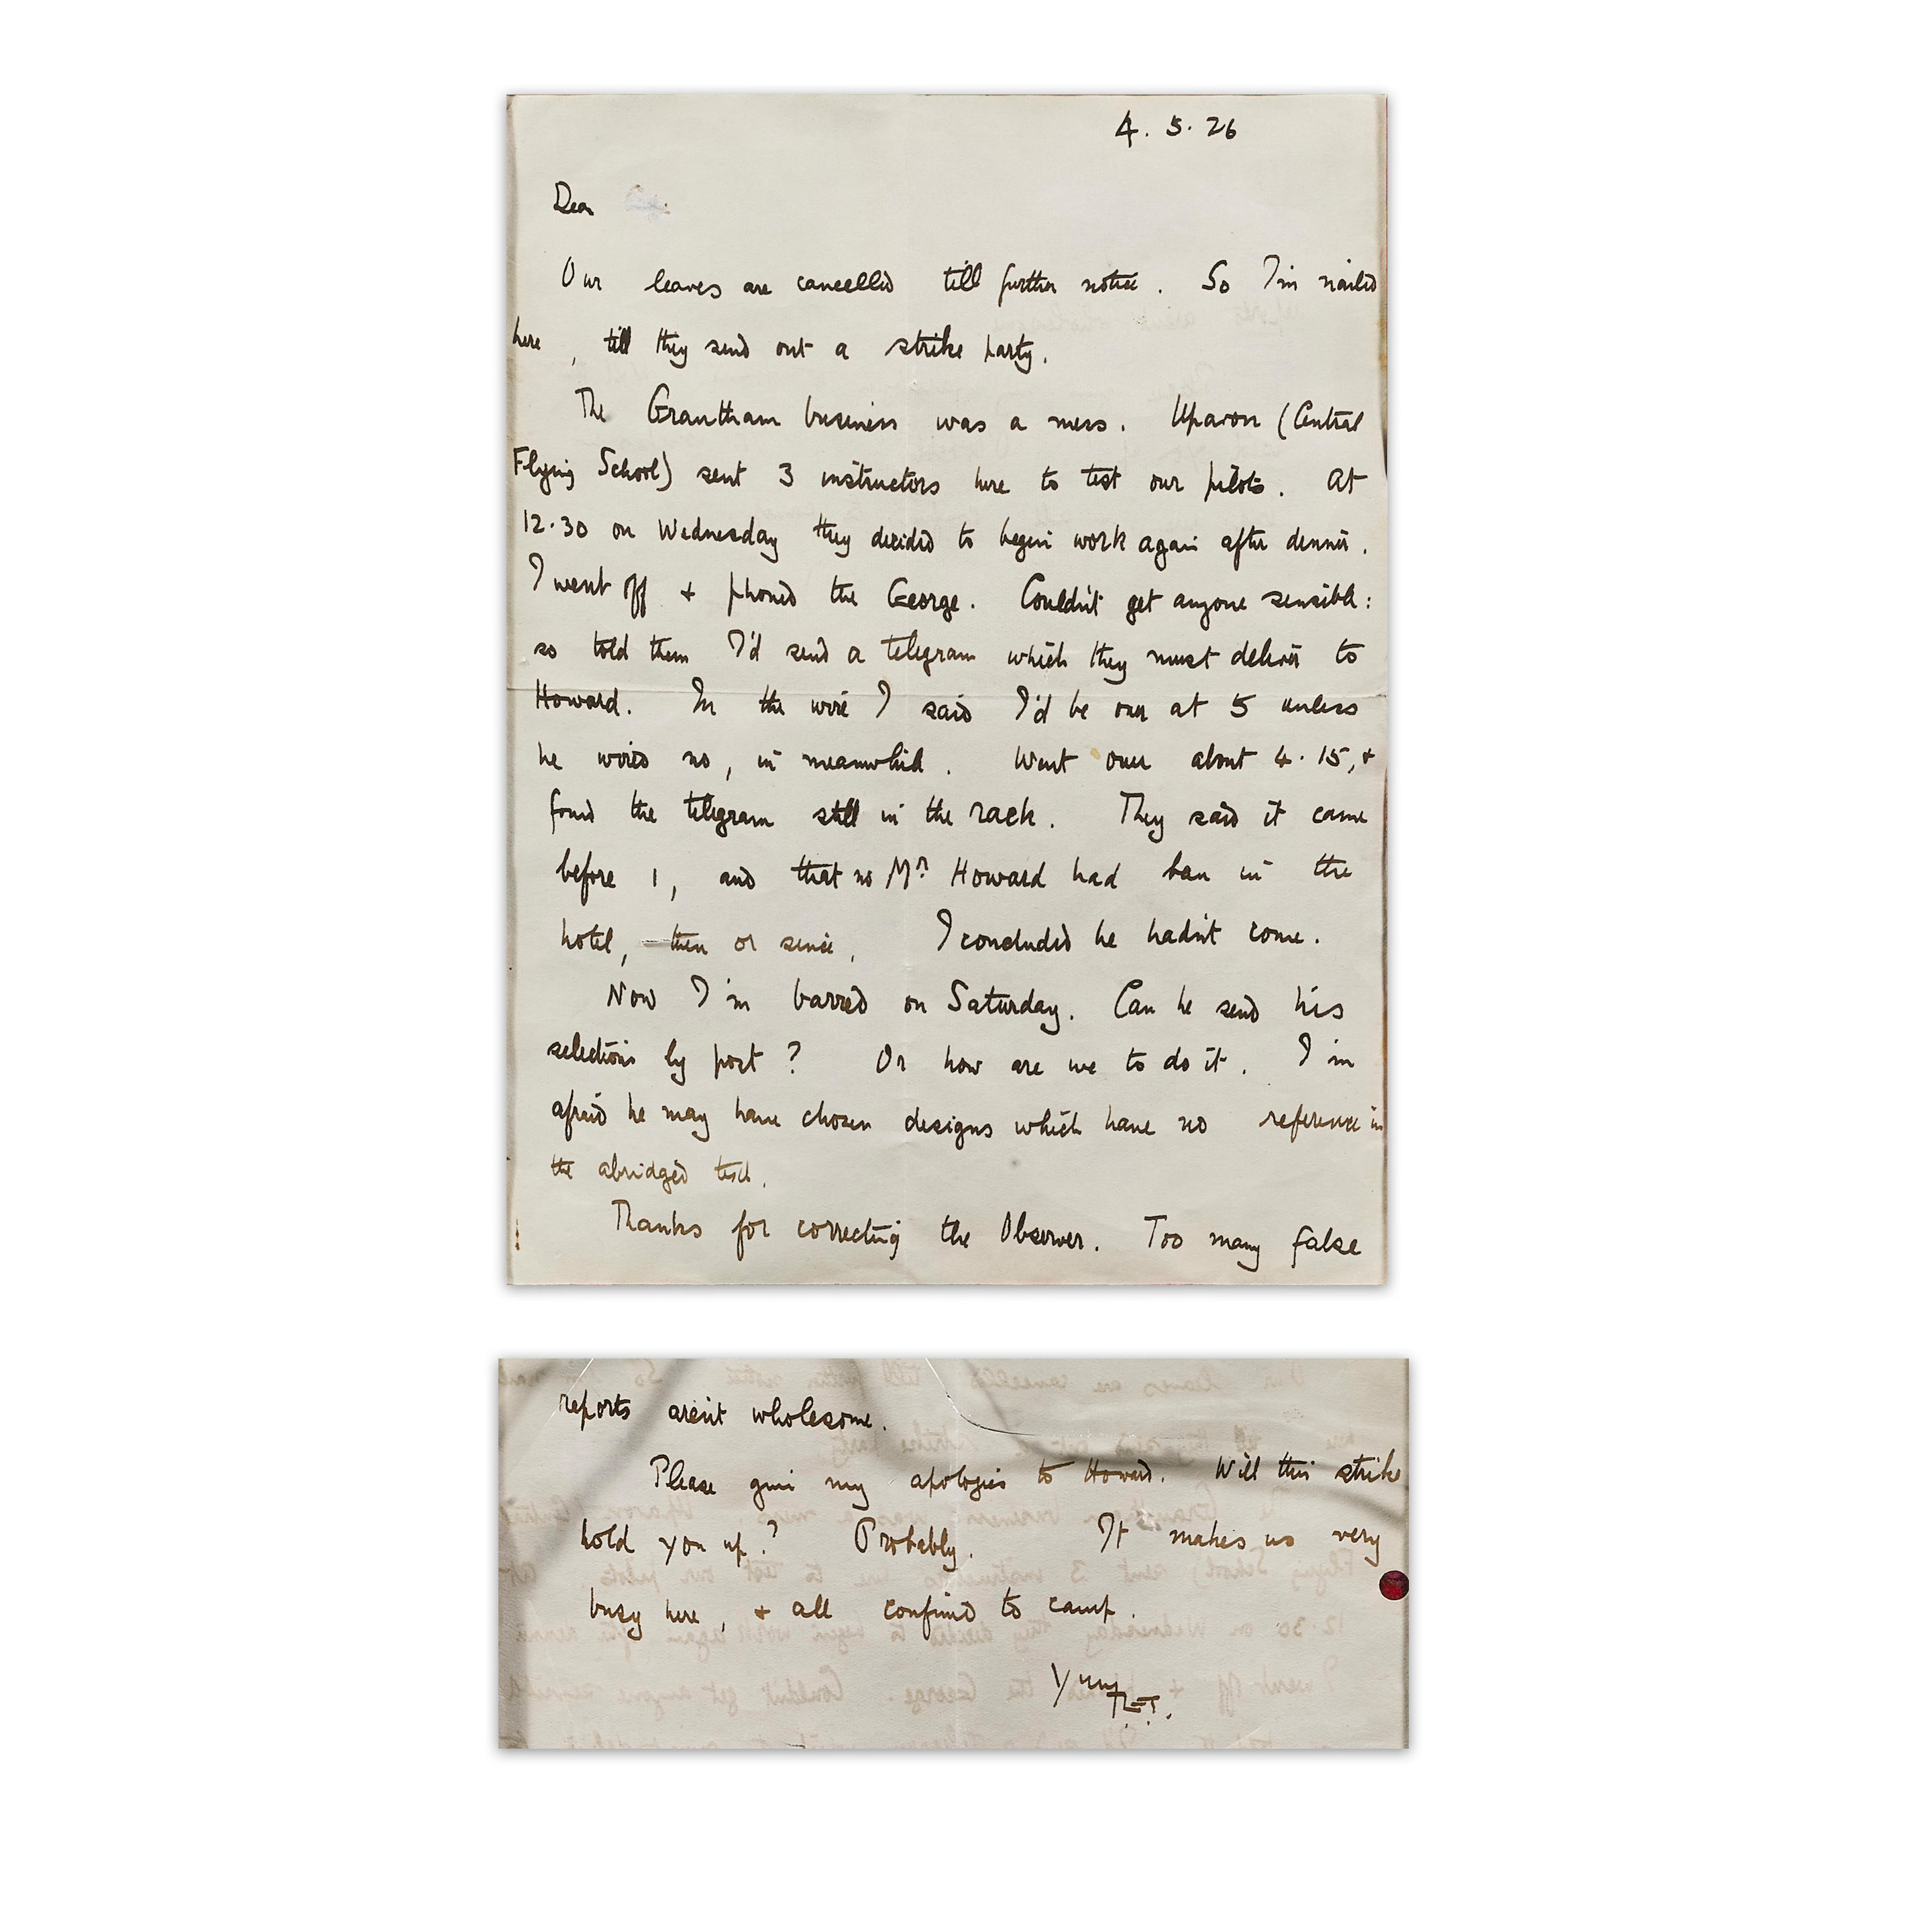 4. 5. 26
Dear
Our leaves are cancelled till further notice. So I'm nailed
here, till they send out a strike party.
The Grantham business was a mess. Upavon (Central
Flying School) sent 3 instructors here to test our pilots. At
12.30 on Wednesday they decided to begin work again after dinner.
I went off + phoned the George. Couldn't get anyone sensible:
so told them I'd send a telegram which they must deliver to
Howard. In the wire I said I'd be over at 5 unless
he wired no, in meanwhile. Went over about 4.15, +
found the telegram still in the rack. They said it came
before 1, and that no Mr Howard had been in the
hotel, then or since. I concluded he hadn't come.
Now I'm barred on Saturday. Can he send his
selections by post? Or how are we to do it. I'm
afraid he may have chosen designs which have no reference in
the abridged text.
Thanks for correcting the Observer. Too many false
reports aren't wholesome.
Please give my apologies to Howard. Will this strike
hold you up? Probably. It makes us very
busy here, + all confined to camp.
Yours
T.E.S.